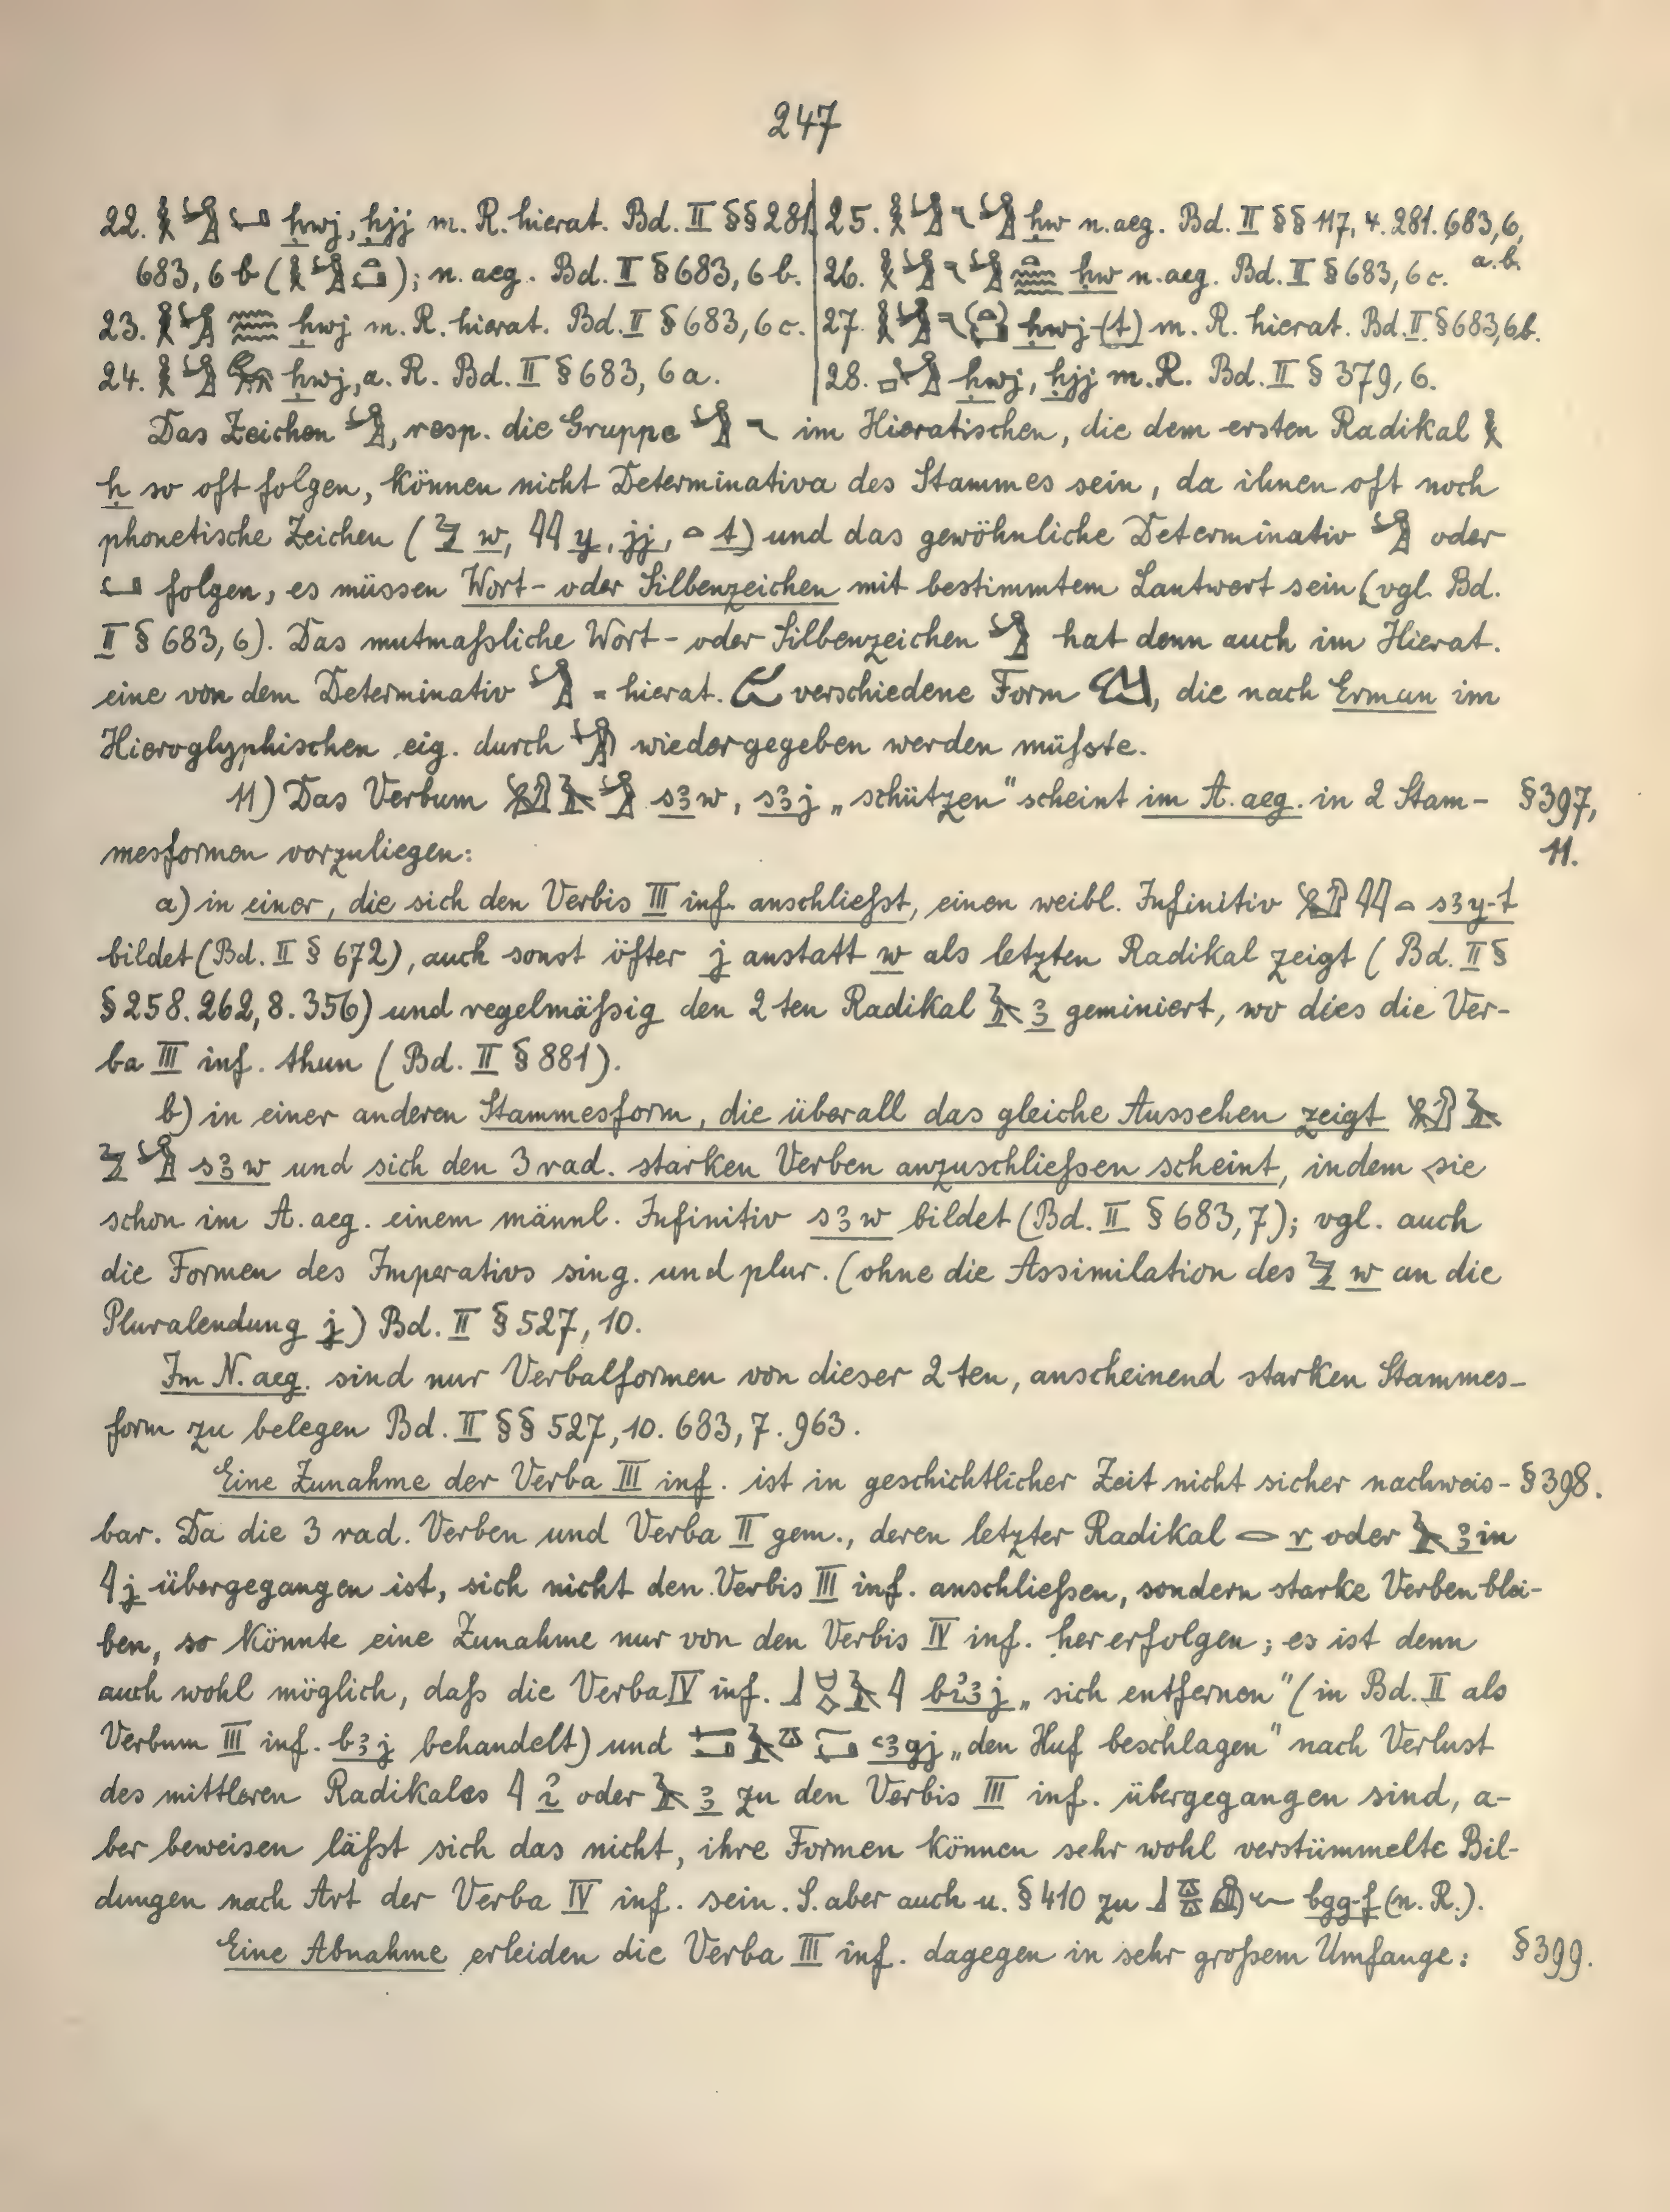 247
22. 𓎛𓀜𓂡 ḥwj, ḥjj m. R. hierat. Bd. II §§ 281.
683, 6 b (); n. aeg. Bd. II § 683, 6 b.
23. 𓎛𓀜𓈗 ḥwj m. R. hierat. Bd. II § 683, 6 c.
24. 𓎛𓀜 ḥwj, a. R. Bd. II § 683, 6 a.
25. 𓎛𓀜𓏲𓀜 ḥw n. aeg. Bd. II §§ 117, 4. 281. 683, 6,
a. b.
26. 𓎛𓀜𓏲𓀜 ḥw n. aeg. Bd. II § 683, 6 c.
27. 𓎛𓀜 ḥwj-(t) m. R. hierat. Bd. II § 683, 6 b.
28. 𓀜 ḥwj, ḥjj m. R. Bd. II § 379, 6.
Das Zeichen 𓀜, resp. die Gruppe 𓀜𓏲 im Hieratischen, die dem ersten Radikal 𓎛
ḥ so oft folgen, können nicht Determinativa des Stammes sein, da ihnen oft noch
phonetische Zeichen (𓅱 w, 𓇋𓇋 y, jj, 𓏏 t) und das gewöhnliche Determinativ 𓀜 oder
𓂡 folgen, es müssen Wort- oder Silbenzeichen mit bestimmtem Lautwert sein (vgl. Bd.
II § 683, 6). Das mutmaßliche Wort- oder Silbenzeichen 𓀜 hat denn auch im Hierat.
eine von dem Determinativ 𓀜 = hierat. verschiedene Form, die nach Erman im
Hieroglyphischen eig. durch wiedergegeben werden müßte.
11) Das Verbum 𓀜 s3w, s3j „schützen" scheint im A. aeg. in 2 Stam- § 397,
mesformen vorzuliegen: 11.
a) in einer, die sich den Verbis III inf. anschließt, einen weibl. Infinitiv 𓇋𓇋𓏏 s3y-t
bildet (Bd. II § 672), auch sonst öfter j anstatt w als letzten Radikal zeigt (Bd. II §
§ 258. 262, 8. 356) und regelmäßig den 2 ten Radikal 𓄿 3 geminiert, wo dies die Ver-
ba III inf. thun (Bd. II § 881).
b) in einer anderen Stammesform, die überall das gleiche Aussehen zeigt 𓄿
𓅱𓀜 s3w und sich den 3 rad. starken Verben anzuschließen scheint, indem sie
schon im A. aeg. einem männl. Infinitiv s3w bildet (Bd. II § 683, 7); vgl. auch
die Formen des Imperativs sing. und plur. (ohne die Assimilation des 𓅱 w an die
Pluralendung j) Bd. II § 527, 10.
Im N. aeg. sind nur Verbalformen von dieser 2 ten, anscheinend starken Stammes-
form zu belegen Bd. II §§ 527, 10. 683, 7. 963.
Eine Zunahme der Verba III inf. ist in geschichtlicher Zeit nicht sicher nachweis- § 398.
bar. Da die 3 rad. Verben und Verba II gem., deren letzter Radikal 𓂋 r oder 𓄿 3 in
𓇋 j übergegangen ist, sich nicht den Verbis III inf. anschließen, sondern starke Verben blei-
ben, so könnte eine Zunahme nur von den Verbis IV inf. her erfolgen; es ist denn
auch wohl möglich, daß die Verba IV inf. 𓃀𓄿𓇋 bi3j „sich entfernen" (in Bd. II als
Verbum III inf. b3j behandelt) und ꜥ3gj „den Huf beschlagen" nach Verlust
des mittleren Radikales 𓇋 i oder 𓄿 3 zu den Verbis III inf. übergegangen sind, a-
ber beweisen läßt sich das nicht, ihre Formen können sehr wohl verstümmelte Bil-
dungen nach Art der Verba IV inf. sein. S. aber auch u. § 410 zu 𓃀𓎼𓎼𓆑 bgg-f (n. R.).
Eine Abnahme erleiden die Verba III inf. dagegen in sehr großem Umfange: § 399.